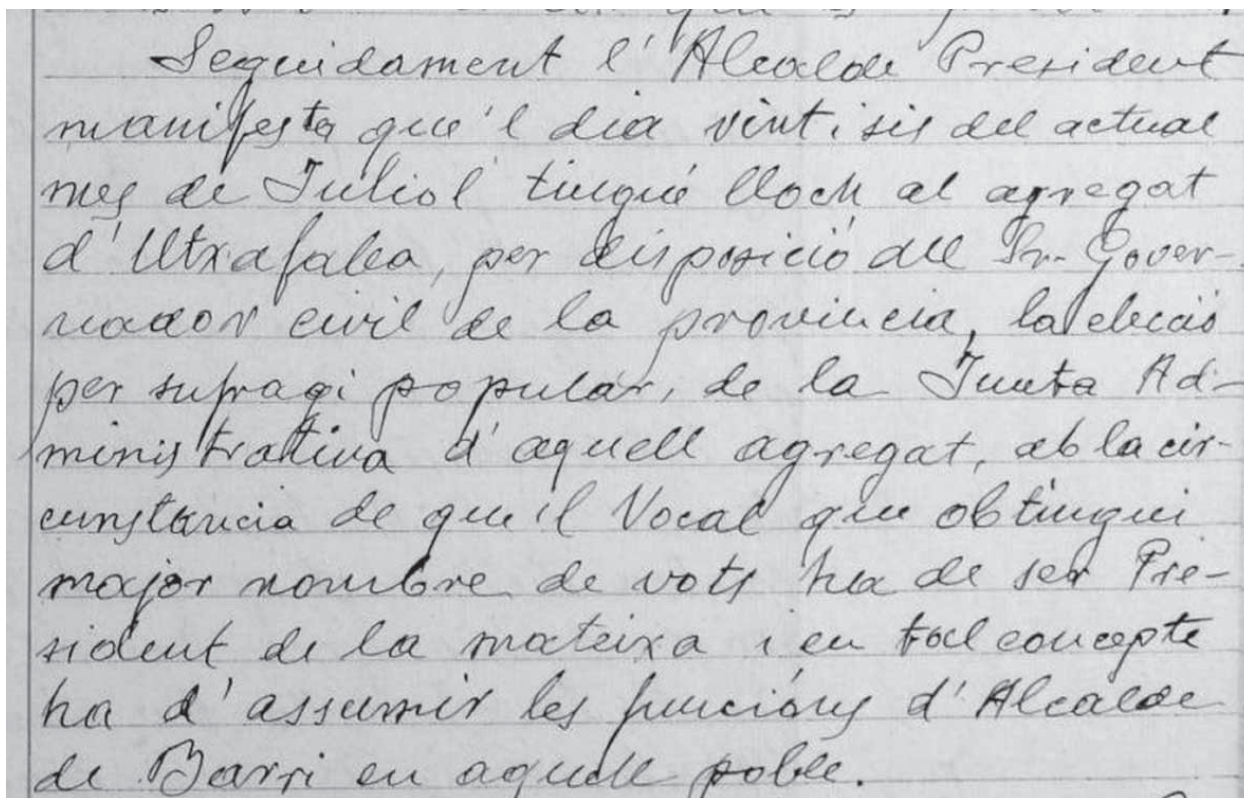 Seguidament l'Alcalde President
manifesta que'l dia vint i sis del actual
mes de Juliol tingué lloch al agregat
d'Utxafaba, per disposició del Sr. Gover-
nador civil de la provincia, la elecció
per sufragi popular, de la Junta Ad-
ministrativa d'aquell agregat, ab la cir-
cunstancia de que'l Vocal que obtingui
major nombre de vots ha de ser Pre-
sident de la mateixa i en tal concepte
ha d'assumir les funcións d'Alcalde
de Barri en aquell poble.